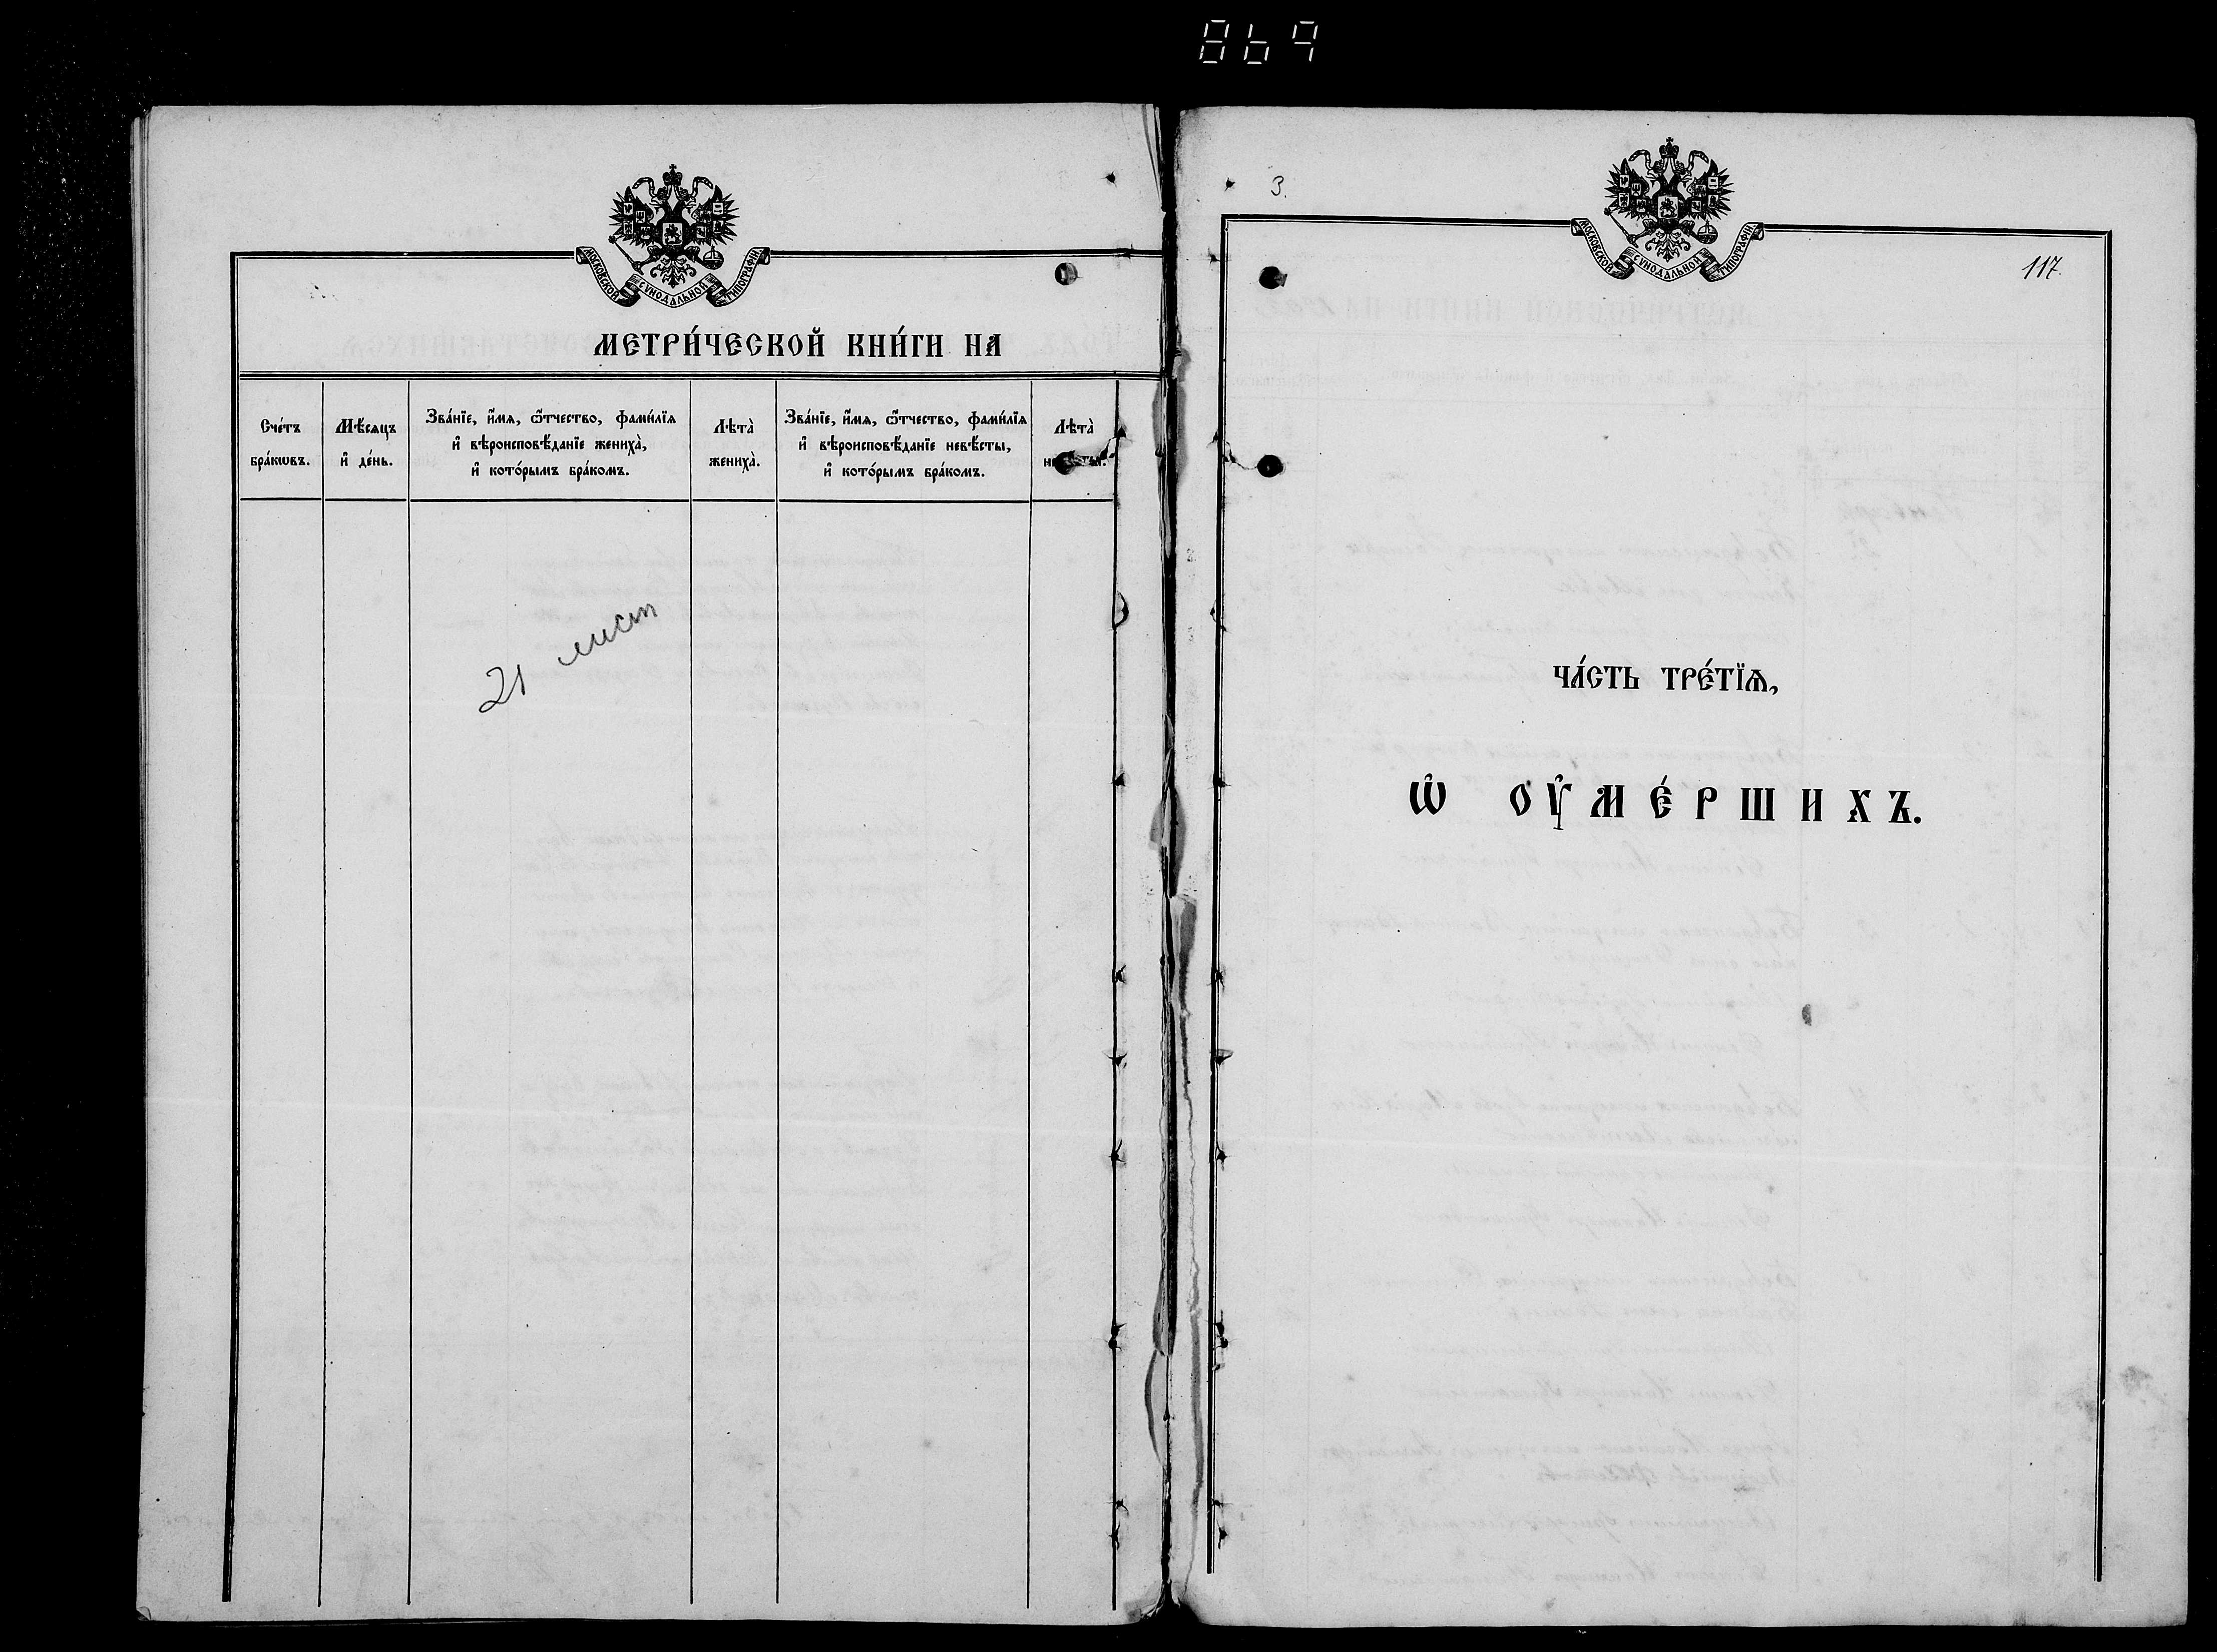 869
МОСКОВСКОЙ СѴНОДАЛЬНОЙ ТИПОГРАФІИ
МЕТРИ́ЧЕСКОЙ КНИ́ГИ НА
Сче́тъ
бра́кѡвъ.
Мѣ́сяцъ
и҆ де́нь.
Зва́нїе, и҆́мѧ, ѻ҆́тчество, фами́лїѧ
и҆ вѣроисповѣ́данїе жениха̀,
и҆ кото́рымъ бра́комъ.
Лѣта̀
жениха̀.
Зва́нїе, и҆́мѧ, ѻ҆́тчество, фами́лїѧ
и҆ вѣроисповѣ́данїе невѣ́сты,
и҆ кото́рымъ бра́комъ.
Лѣта̀
21 лист
3.
МОСКОВСКОЙ СѴНОДАЛЬНОЙ ТИПОГРАФІИ
117.
ЧА́СТЬ ТРЕ́ТЇѦ,
Ѡ҆ ОУ҆МЕ́РШИХЪ.